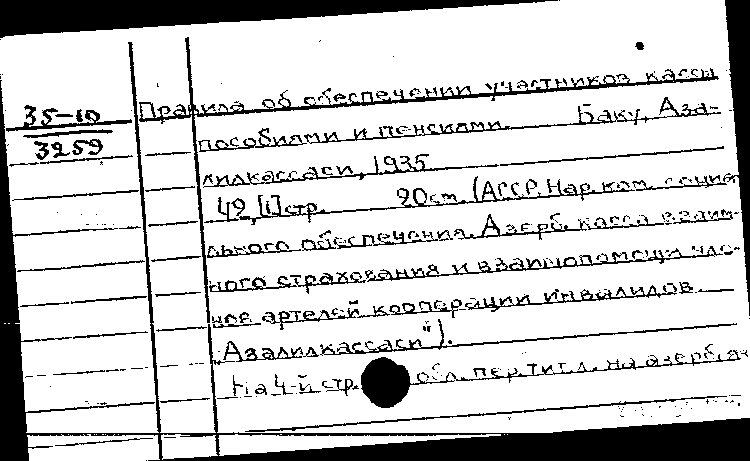 35-10
3259
Правила об обеспечении участников кассы
пособиями и пенсиями. Баку, Аза-
лилкассаси, 1935
42,[1]стр. 20см. (АССР. Нар. ком. социа
льного обеспечения. Азерб. касса взаим-
ного страхования и взаимопомощи чле-
нов артелей кооперации инвалидов.
„Азалилкассаси").
На 4-й стр. обл. пер. тит. л. на азерб. яз